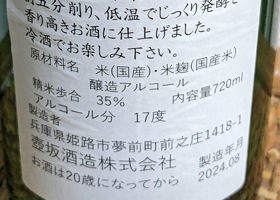 五分削り、低温でじっくり発酵さ
香り高きお酒に仕上げました。
冷酒でお楽しみ下さい。
原材料名 米(国産)・米麹(国産米)
醸造アルコール
精米歩合 35% 内容量720ml
アルコール分 17度
製造者
兵庫県姫路市夢前町前之庄1418-1
壺坂酒造株式会社 製造年月
お酒は20歳になってから 2024.08